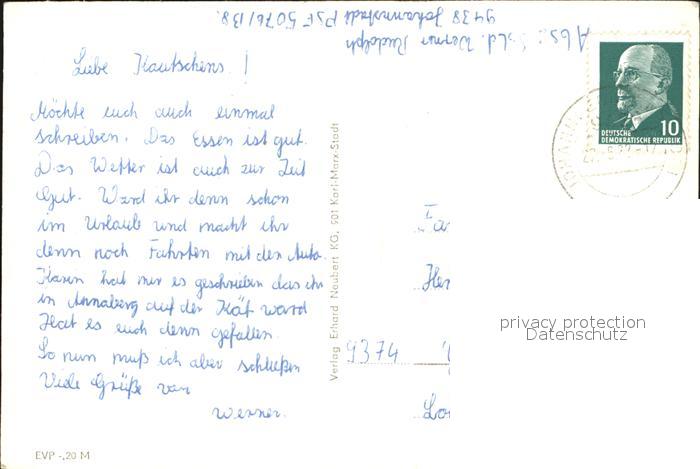 Abs.: Sold. Werner Rudolph
9438 Johannstadt PSF 5076/B8.
Liebe Kautschens!
Möchte euch auch einmal
schreiben. Das Essen ist gut.
Das Wetter ist auch zur Zeit
Gut. Ward ihr denn schon
im Urlaub und macht ihr
denn noch Fahrten mit den Auto.
Karen hat mir es geschrieben das ihr
in Annaberg auf der Kät ward
Hat es euch denn gefallen.
So nun muß ich aber schließen
Viele Grüße von
Werner.
Verlag Erhard Neubert KG, 901 Karl-Marx-Stadt
10
DEUTSCHE
DEMOKRATISCHE REPUBLIK
Fa
Her
9374
privacy protection
Datenschutz
EVP -,20 M